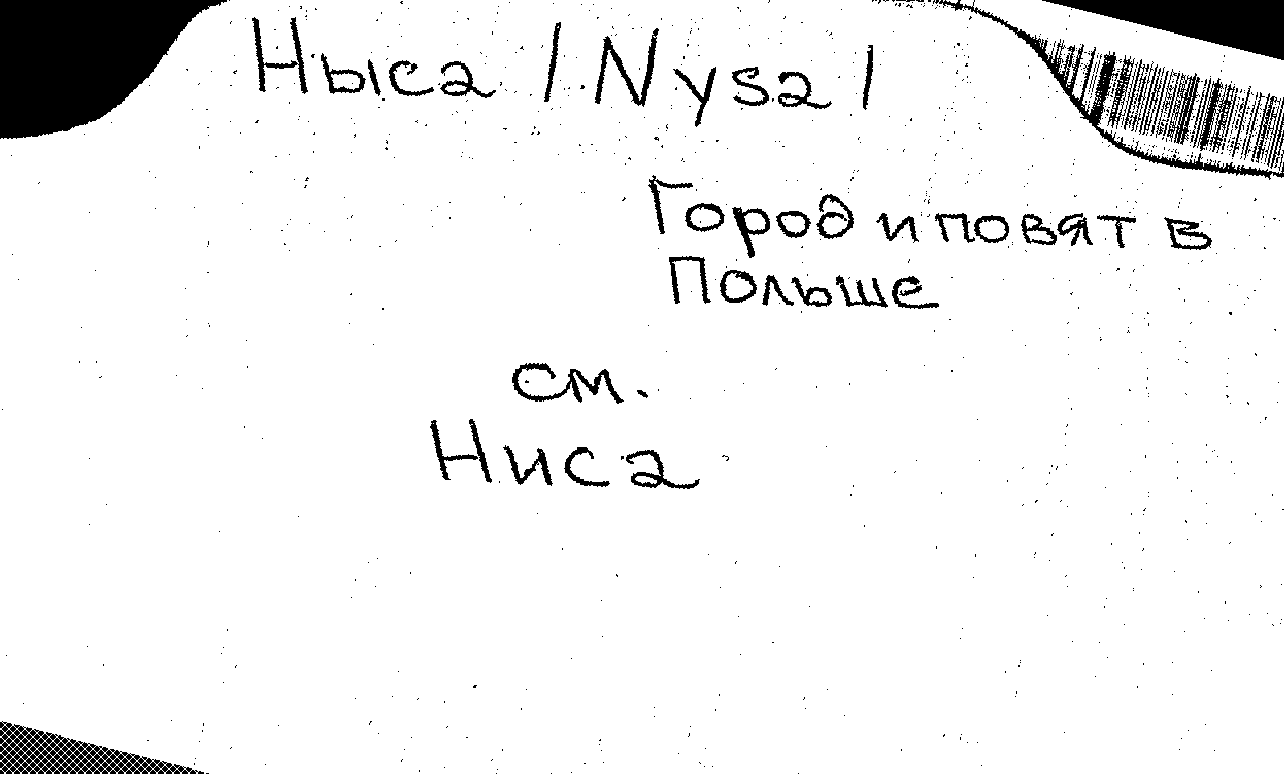 Ныса /Nysa/
Город и повят в
Польше
см.
Ниса